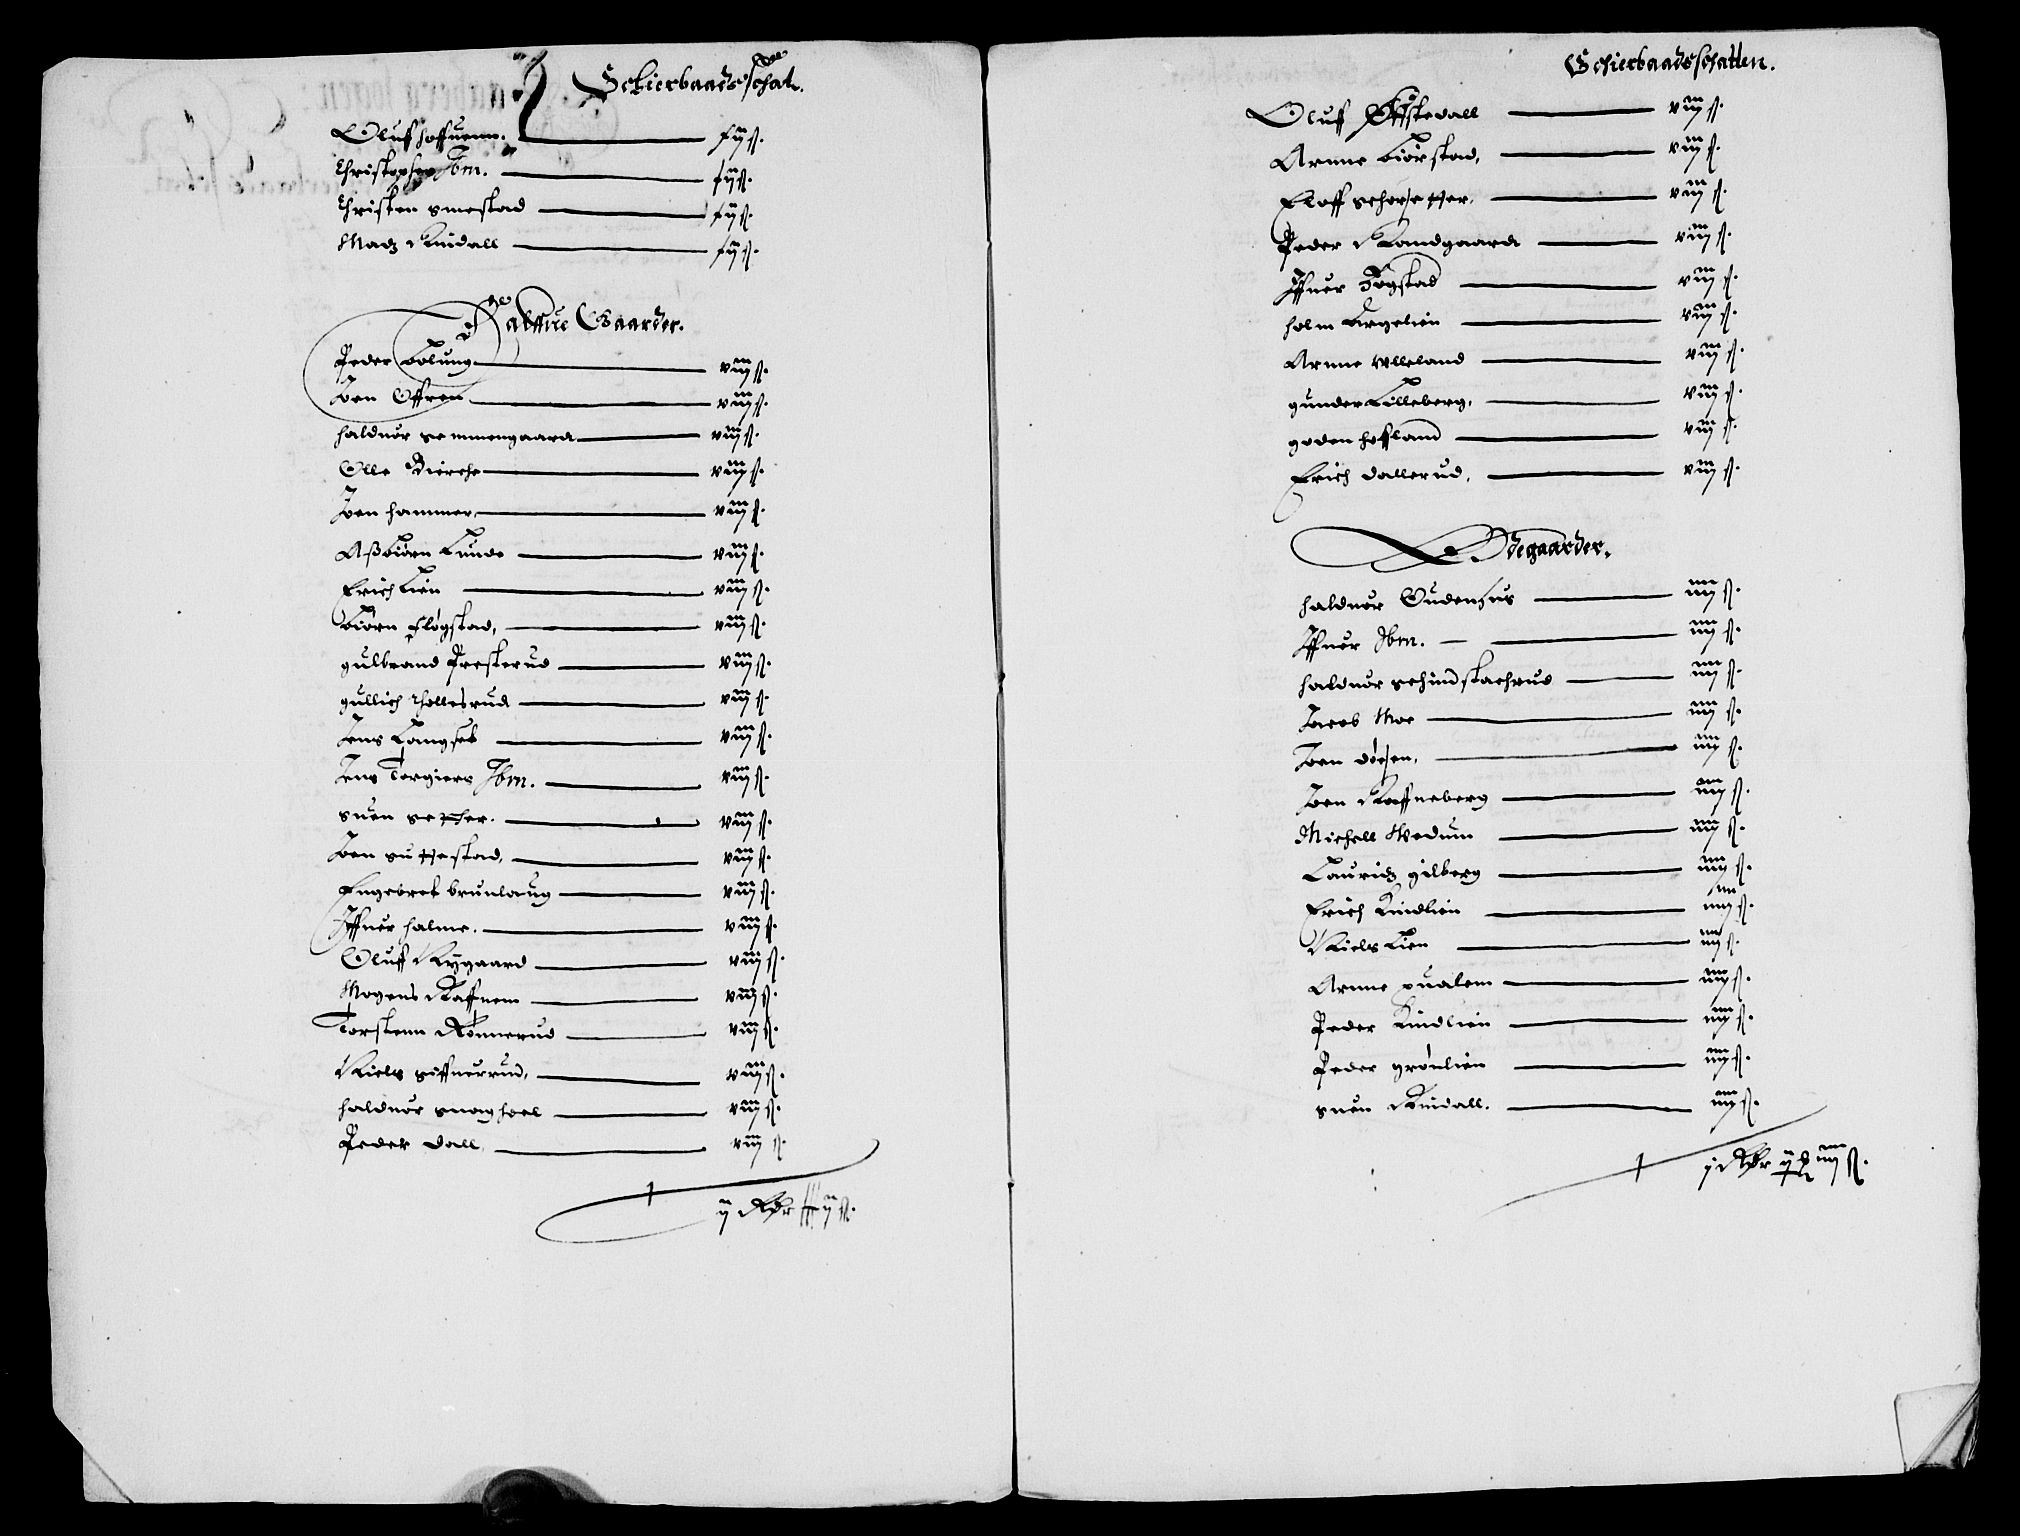 Schierbaadsschat.
Oluf hoffuenn. fij ß.
Christopher Ibm. fij ß.
Christen smestad fij ß.
Madz Kindall fij ß.
Halffue Gaarder.
Peder Bolung viij ß.
Joen Offren viij ß.
halduor semmengaard viij ß.
Olle Bierche viij ß.
Joen hammer viij ß.
Aßbiørn Lunde viij ß.
Erich Lien viij ß.
Biørn fløgstad, viij ß.
gulbrand Presterud viij ß.
gullich thollesrud viij ß.
Jens Langset viij ß.
Jens Torgiers Ibm. viij ß.
suen setter. viij ß.
Joen suttestad, viij ß.
Engebret brunlaug viij ß.
Iffuer halme. viij ß.
Oluff Nygaard viij ß.
Mogens Raffnem viij ß.
Torstenn Rønnerud viij ß.
Niels siffuerrud, viij ß.
halduor snaghoel viij ß.
Peder dall, viij ß.
ij Rdr ij ß.
Schierbaadsschatten.
Oluf viij ß.
Arnne Biørstad, viij ß.
Eloff viij ß.
Peder Landgaard viij ß.
Iffuer Fogstad viij ß.
holm Bergelien viij ß.
Arnne Ulleland viij ß.
gunder Lilleberg, viij ß.
goden hoffland viij ß.
Erich dallerud, viij ß.
Ødegaarder.
halduor Oudenhus iiij ß.
Iffuer Ibm. iiij ß.
halduor schindstachrud iiij ß.
Jacob Moe iiij ß.
Joen døesen, iiij ß.
Joen Raffneberg iiij ß.
Michell Wedum iiij ß.
Lauridz gilberg iiij ß.
Erich Kindlien iiij ß.
Niels Lien iiij ß.
Arnne pualem iiij ß.
Peder Kindlien iiij ß.
Peder grønlien iiij ß.
suen Kindall. iiij ß.
j Rdr ij iiij ß.